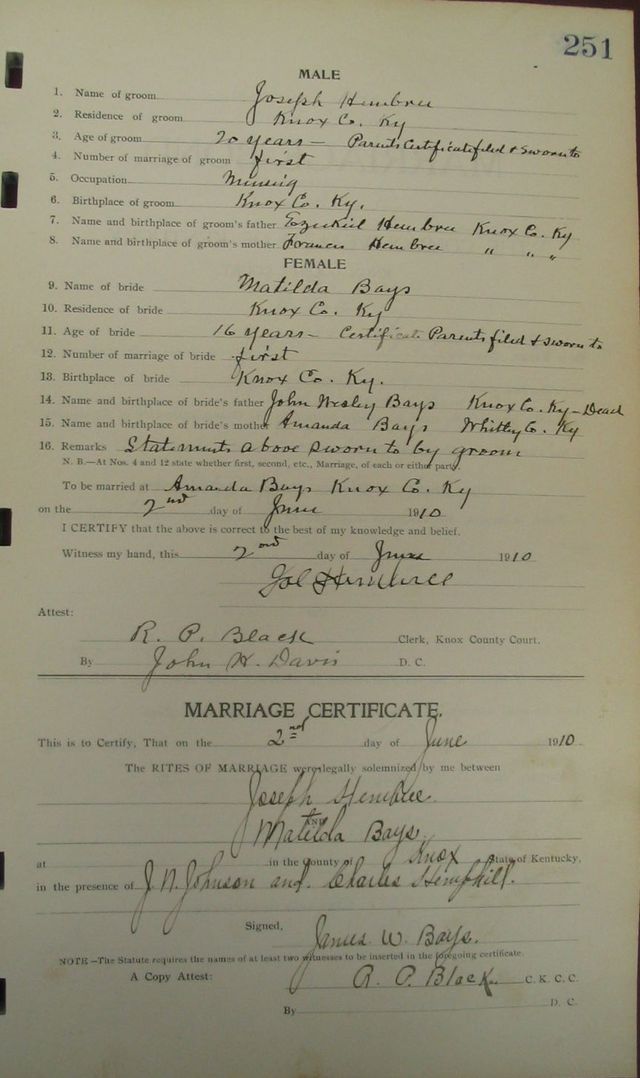 251
MALE
1. Name of groom Joseph Hembree
2. Residence of groom Knox Co. Ky
3. Age of groom 20 years — Parents Certificate filed & sworn to
4. Number of marriage of groom first
5. Occupation Mining
6. Birthplace of groom Knox Co. Ky.
7. Name and birthplace of groom's father Ezekiel Hembree Knox Co. Ky
8. Name and birthplace of groom's mother Frances Hembree " " "
FEMALE
9. Name of bride Matilda Bays
10. Residence of bride Knox Co. Ky
11. Age of bride 16 years — Certificate Parents filed & sworn to
12. Number of marriage of bride first
13. Birthplace of bride Knox Co. Ky.
14. Name and birthplace of bride's father John Wesley Bays Knox Co. Ky – Dead
15. Name and birthplace of bride's mother Amanda Bays Whitley Co. Ky
16. Remarks Statements above sworn to by groom
N. B.—At Nos. 4 and 12 state whether first, second, etc., Marriage, of each or either party.
To be married at Amanda Bays Knox Co. Ky
on the 2nd day of June 1910
I CERTIFY that the above is correct to the best of my knowledge and belief.
Witness my hand, this 2nd day of June 1910
Joe Hembree
Attest:
R. P. Black Clerk, Knox County Court.
By John H. Davis D. C.
MARRIAGE CERTIFICATE.
This is to Certify, That on the 2nd day of June 1910
The RITES OF MARRIAGE were legally solemnized by me between
Joseph Hembree
AND
Matilda Bays
at in the County of Knox State of Kentucky,
in the presence of J. N. Johnson and Charles Hemphill.
Signed,
James W Bays.
NOTE—The Statute requires the names of at least two witnesses to be inserted in the foregoing certificate.
A Copy Attest: R. P. Black C. K. C. C.
By D. C.